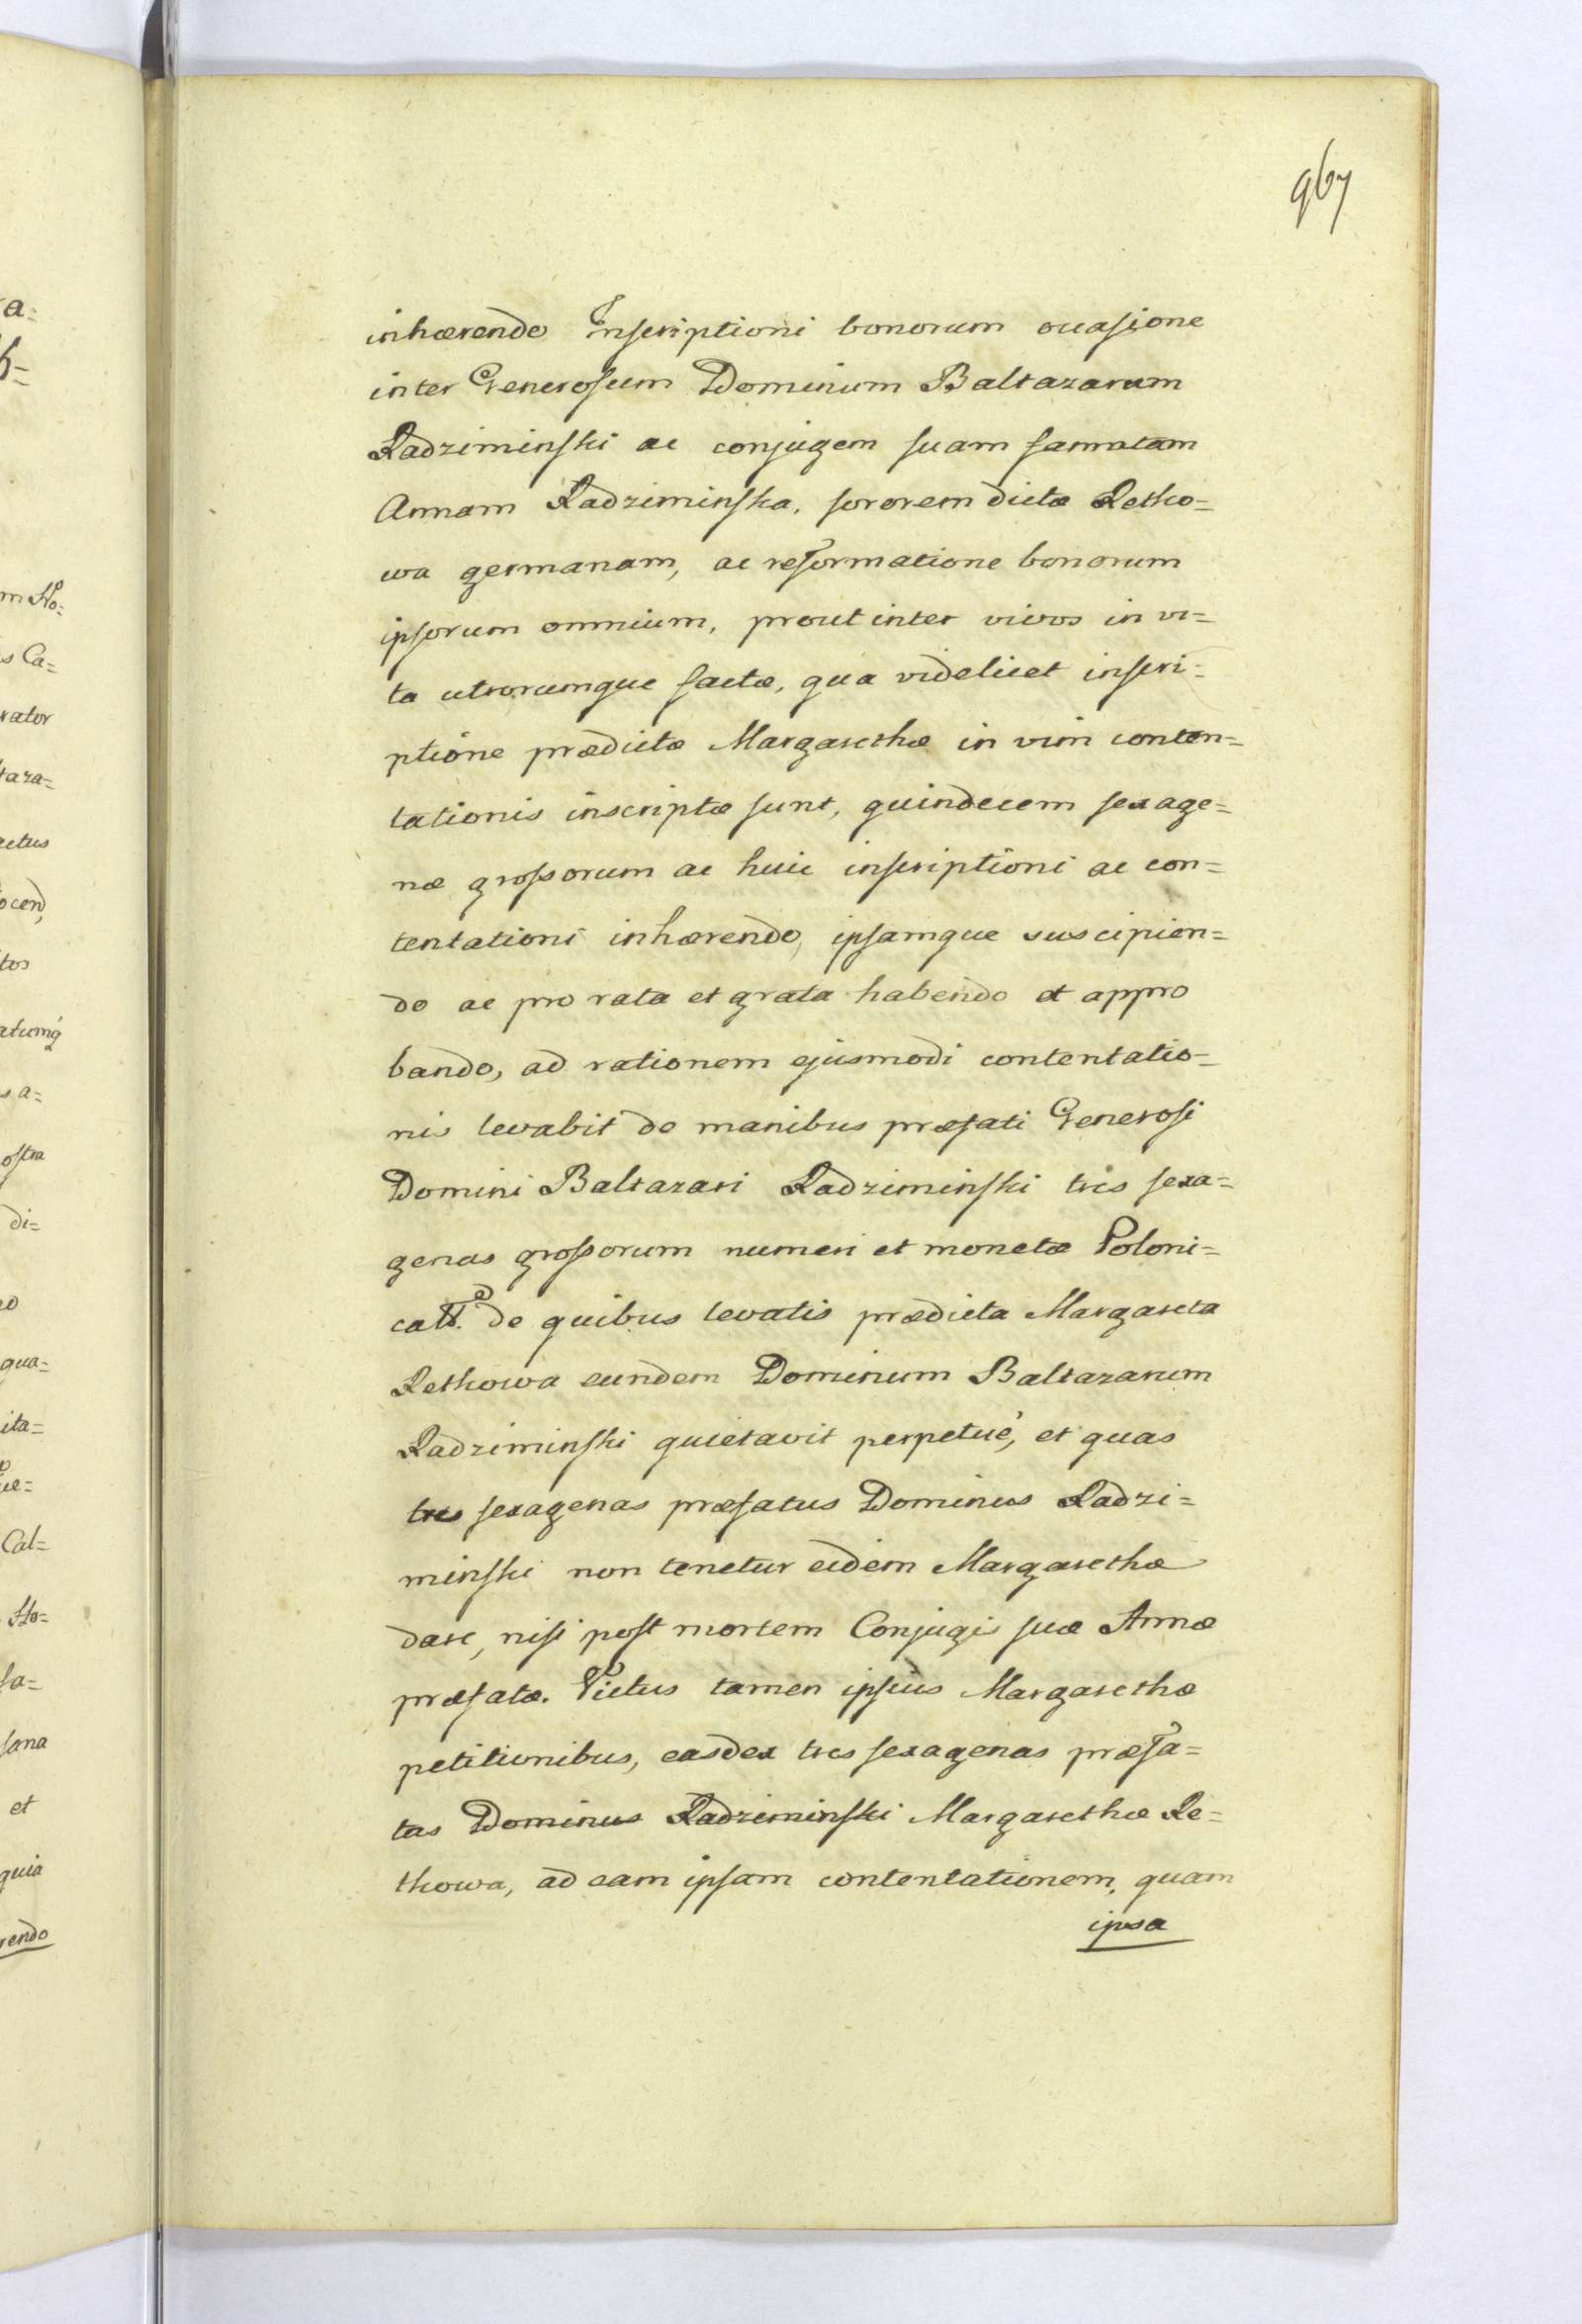 967
inhærendo Inscriptioni bonorum occasione
inter Generosum Dominum Baltazarum
Radziminski ac conjugem suam famatam
Annam Radziminska, sororem dictæ Retko=
wa germanam, ac reformatione bonorum
ipsorum omnium, prout inter vivos in vi=
ta utrorumque factæ, qua videlicet inscri=
ptione prædictæ Margarethæ in vim conten=
tationis inscriptæ sunt, quindecem sexage=
næ grossorum ac huic inscriptioni ac con=
tentationi inhærendo, ipsamque suscipien=
do ac pro rata et grata habendo et appro
bando, ad rationem ejusmodi contentatio=
nis levabit de manibus præfati Generosi
Domini Baltazari Radziminski tris sexa=
genas grossorum numeri et monetæ Poloni=
calis. de quibus levatis prædicta Margareta
Rethowa eundem Dominum Baltazarum
Radziminski quietavit perpetuè, et quas
tres sexagenas præfatus Dominus Radzi=
minski non tenetur eidem Margarethæ
dare, nisi post mortem Conjugis suæ Annæ
præfatæ. Victus tamen ipsius Margarethæ
petitionibus, easdex tres sexagenas præfa=
tas Dominus Radziminski Margarethæ Re=
thowa, ad eam ipsam contentationem, quam
ipsa